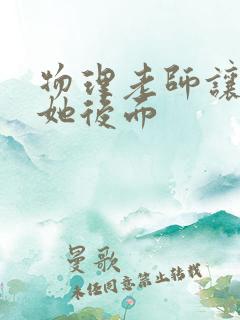 物理老師讓
她後而
曼歌
未经同意禁止转载